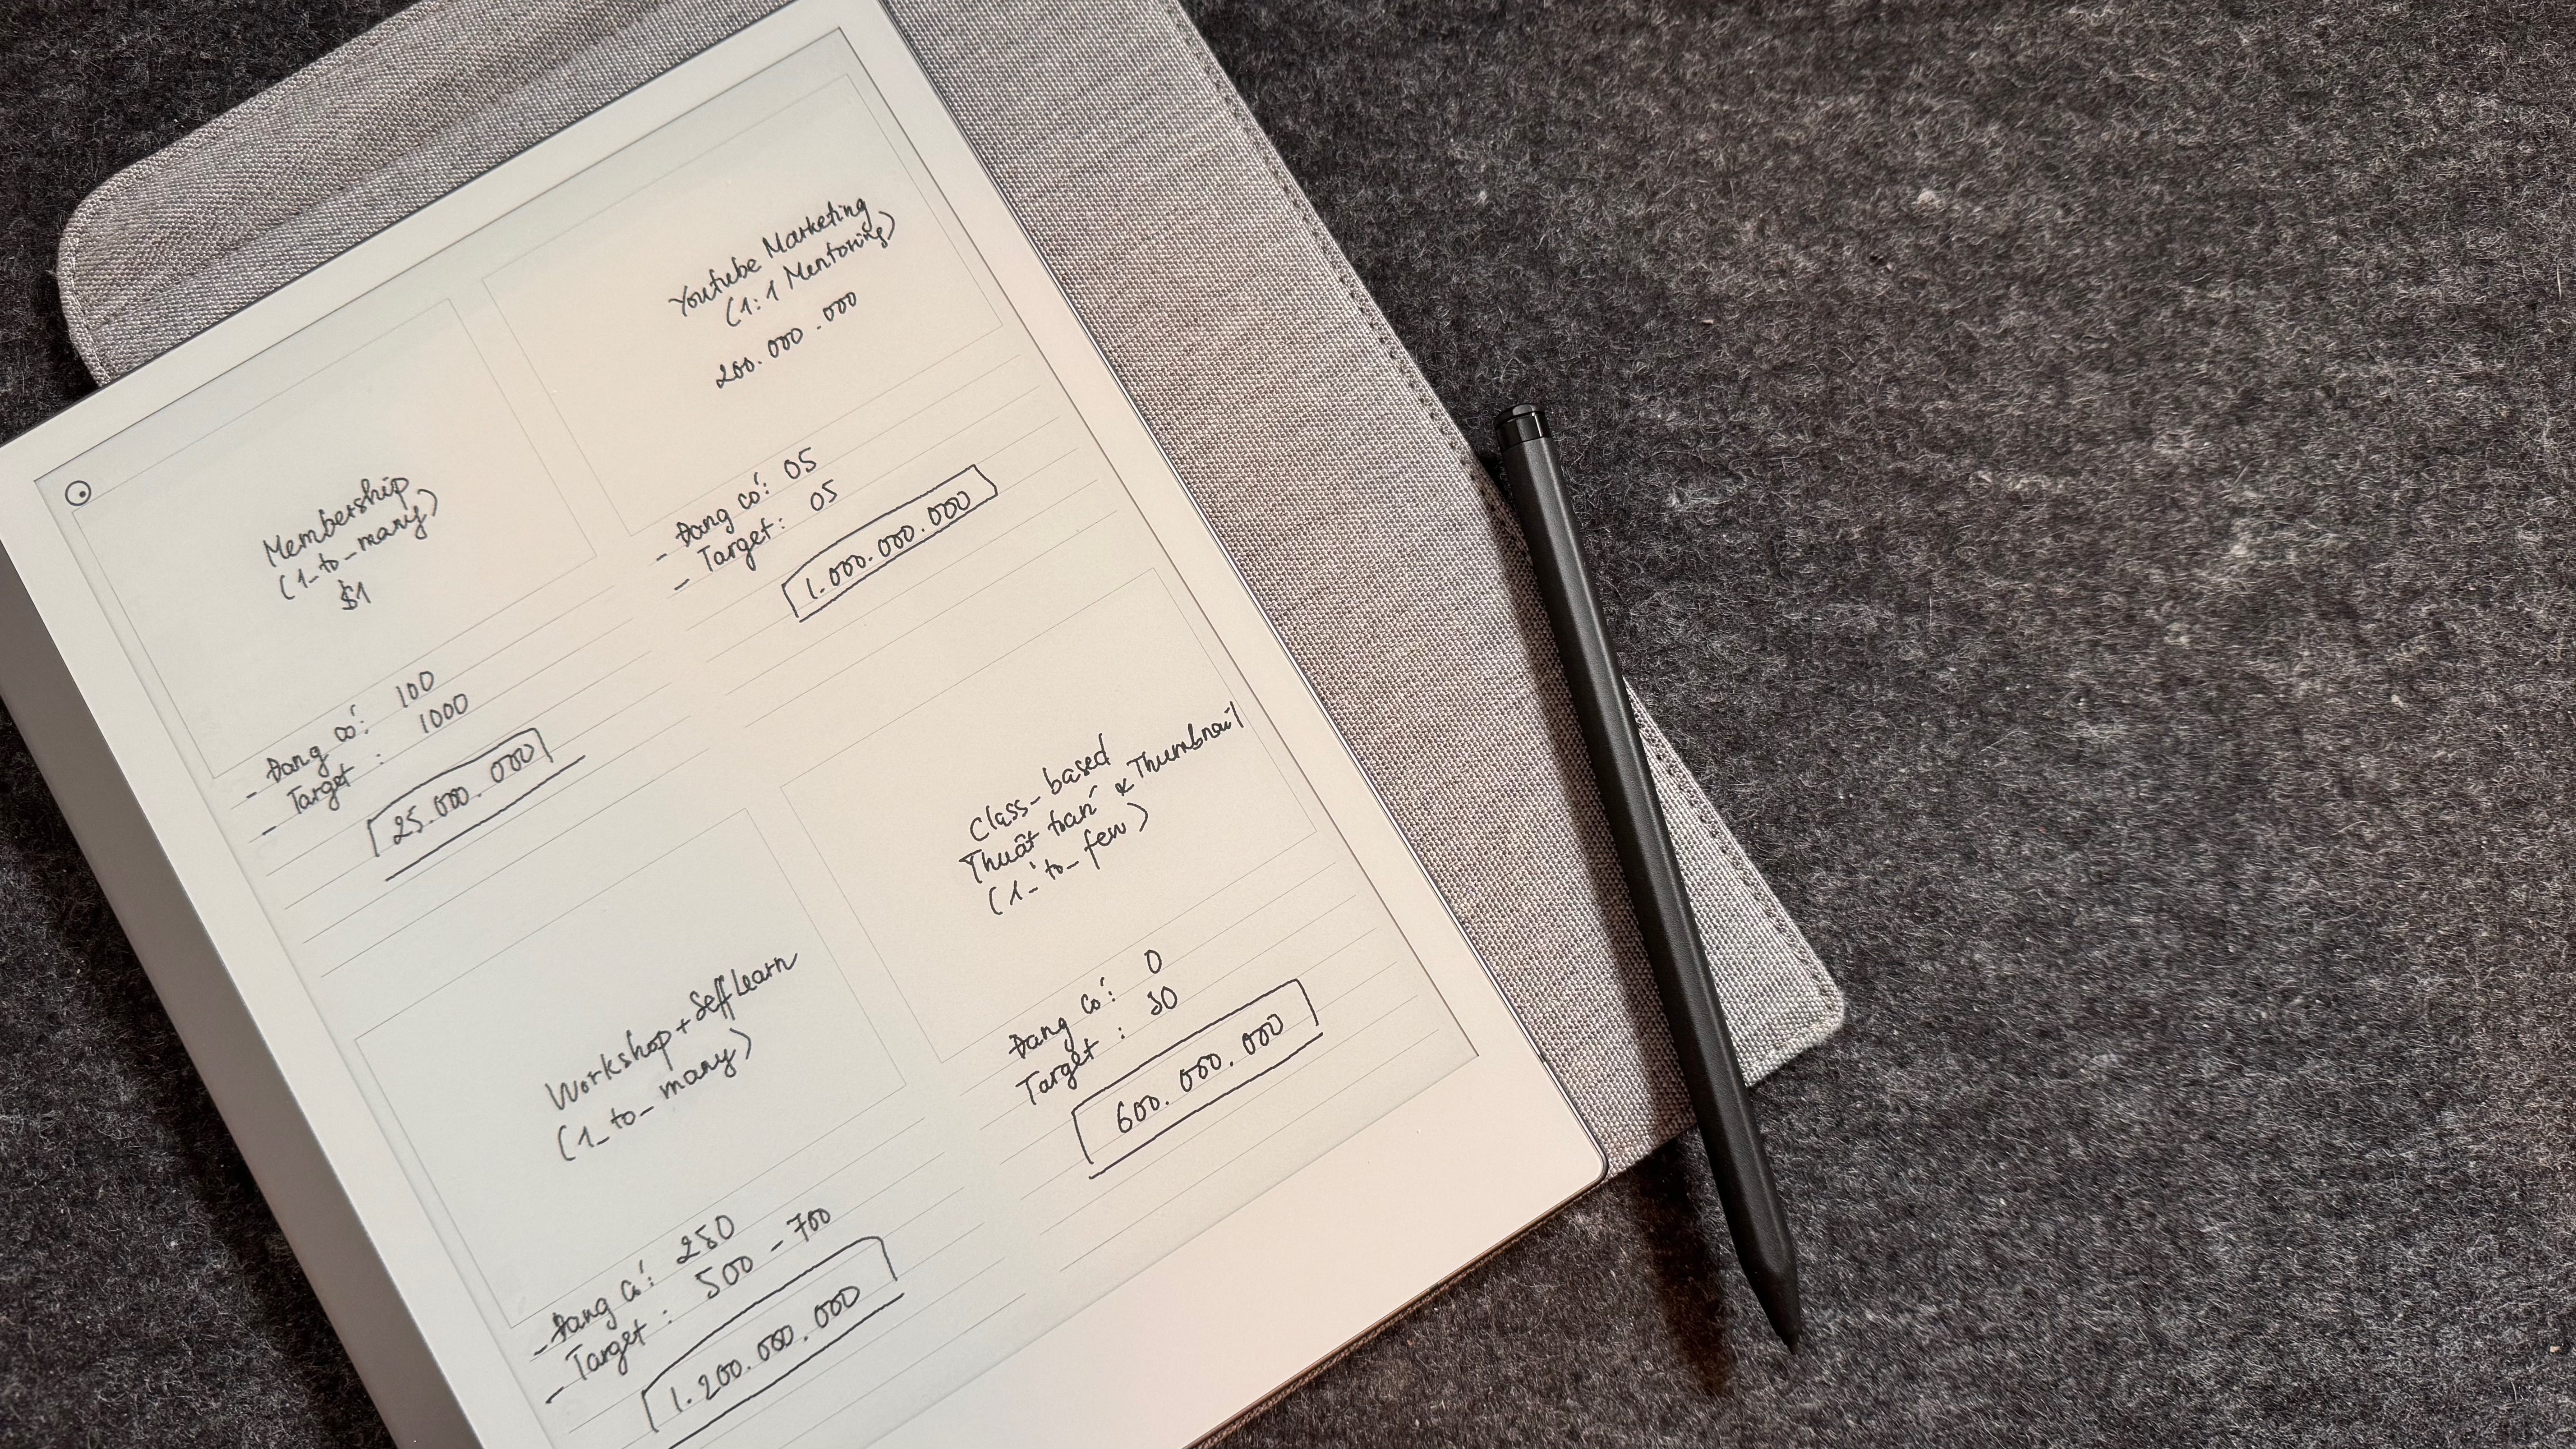 Membership
(1_to_many)
$1
- Đang có: 100
- Target: 1000
25.000.000
Youtube Marketing
(1:1 Mentoring)
200.000.000
- Đang có: 05
- Target: 05
1.000.000.000
Workshop + Self Learn
(1_to_many)
- Đang có: 250
- Target: 500 - 700
1.200.000.000
Class_based
Thuật toán & Thumbnail
(1_to_few)
Đang có: 0
Target: 30
600.000.000